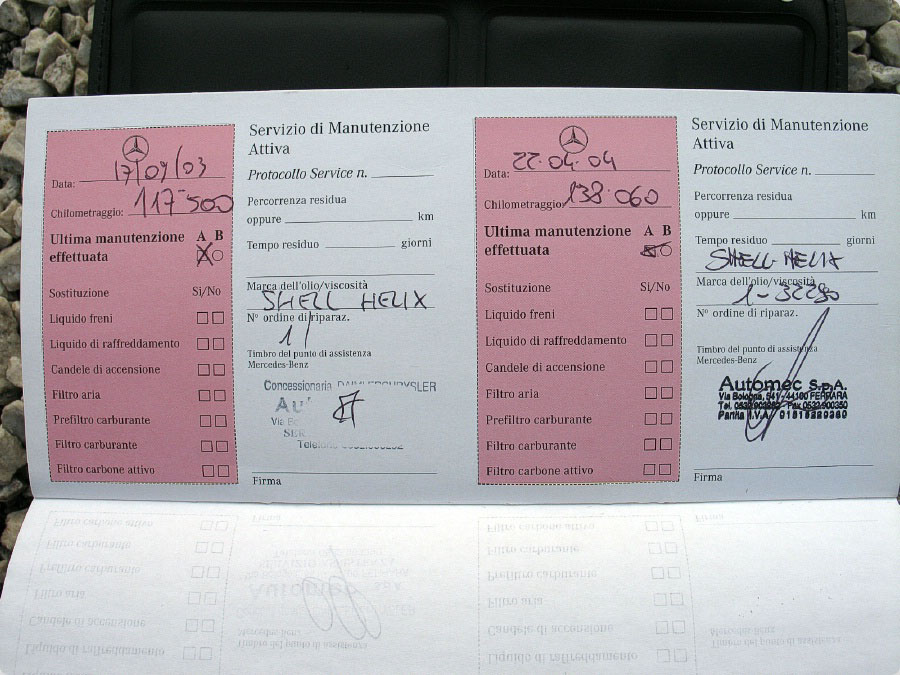 Data: 17/09/03
Chilometraggio: 117500
Ultima manutenzione A B
effettuata X
Sostituzione Si/No
Liquido freni
Liquido di raffreddamento
Candele di accensione
Filtro aria
Prefiltro carburante
Filtro carburante
Filtro carbone attivo
Servizio di Manutenzione
Attiva
Protocollo Service n.
Percorrenza residua
oppure km
Tempo residuo giorni
Marca dell'olio/viscosità
SHELL HELIX
N° ordine di riparaz.
1/
Timbro del punto di assistenza
Mercedes-Benz
Concessionaria DAIMLERCHRYSLER
Firma
Data: 22.04.04
Chilometraggio: 138.060
Ultima manutenzione A B
effettuata X
Sostituzione Si/No
Liquido freni
Liquido di raffreddamento
Candele di accensione
Filtro aria
Prefiltro carburante
Filtro carburante
Filtro carbone attivo
Servizio di Manutenzione
Attiva
Protocollo Service n.
Percorrenza residua
oppure km
Tempo residuo giorni
SHELL-HELIX
Marca dell'olio/viscosità
N° ordine di riparaz.
Timbro del punto di assistenza
Mercedes-Benz
Automec S.p.A.
Via Bologna, 541 - 44100 FERRARA
Firma